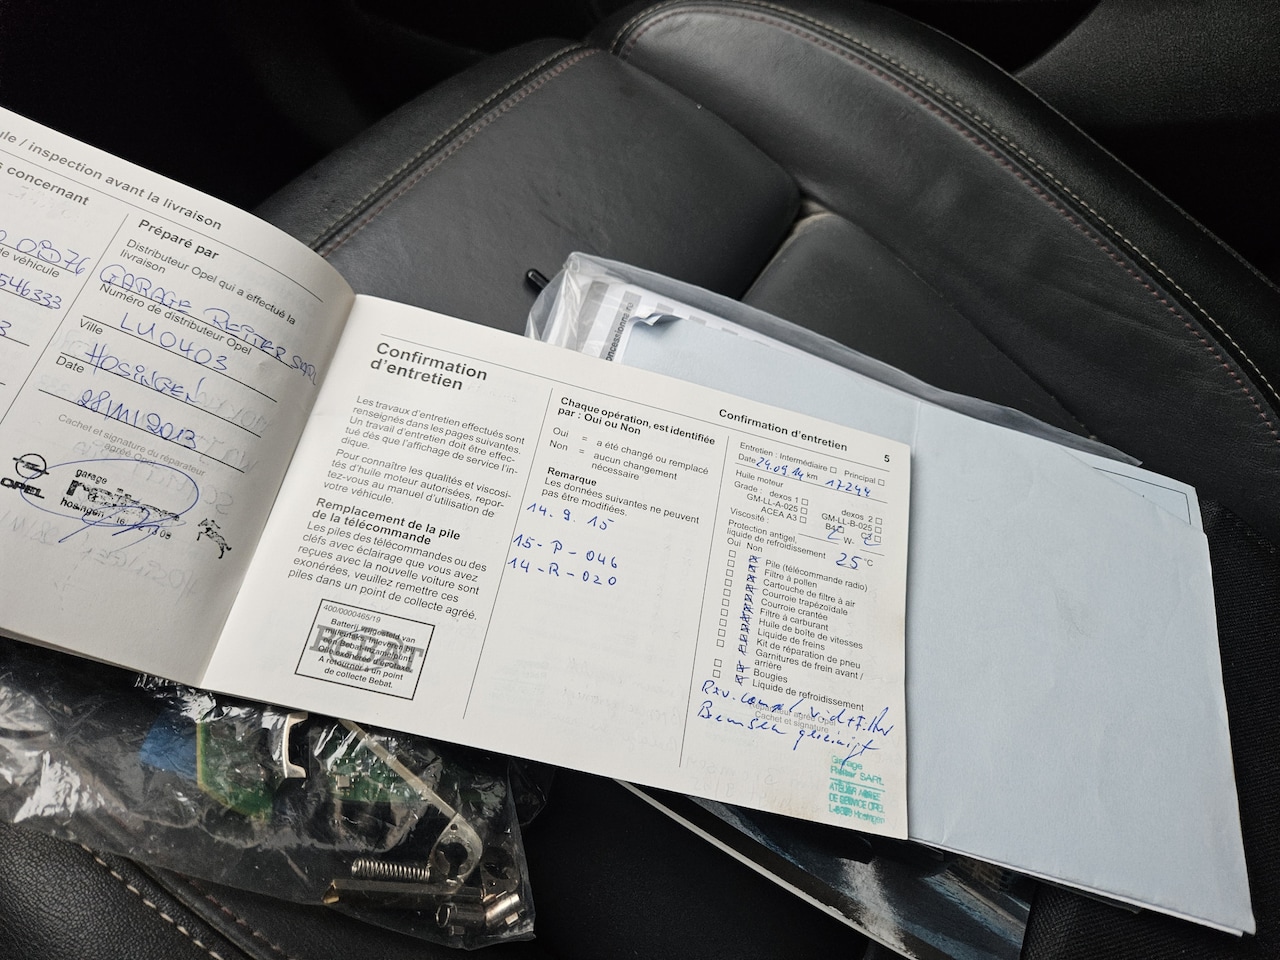 ule / inspection avant la livraison
s concernant
de véhicule
546333
3
Préparé par
Distributeur Opel qui a effectué la
livraison
GARAGE REITER SARL
Numéro de distributeur Opel
LU0403
Ville
HOSINGEN
Date
28/11/2013
Cachet et signature du réparateur
agréé Opel
OPEL
garage
hosingen
Confirmation
d'entretien
Les travaux d'entretien effectués sont
renseignés dans les pages suivantes.
Un travail d'entretien doit être effec-
tué dès que l'affichage de service l'in-
dique.
Pour connaître les qualités et viscosi-
tés d'huile moteur autorisées, repor-
tez-vous au manuel d'utilisation de
votre véhicule.
Remplacement de la pile
de la télécommande
Les piles des télécommandes ou des
clés avec éclairage que vous avez
reçues avec la nouvelle voiture sont
exonérées, veuillez remettre ces
piles dans un point de collecte agréé.
400/0000465/19
BEBAT
Batterij vrijgesteld van
milieutaks. Inleveren bij
een Bebat-inzamelpunt.
Pile exonérée d'écotaxe.
A retourner à un point
de collecte Bebat.
Chaque opération, est identifiée
par : Oui ou Non
Oui = a été changé ou remplacé
Non = aucun changement
nécessaire
Remarque
Les données suivantes ne peuvent
pas être modifiées.
14. 9. 15
15 - P - 046
14 - R - 020
oncessionnaire
Confirmation d'entretien
5
Entretien : Intermédiaire Principal
Date 24.09.14 km 17244
Huile moteur
Grade : dexos 1 dexos 2
GM-LL-A-025 GM-LL-B-025
ACEA A3
Viscosité : W-
Protection antigel,
liquide de refroidissement 25 °C
Oui Non
Pile (télécommande radio)
Filtre à pollen
Cartouche de filtre à air
Courroie trapézoïdale
Courroie crantée
Filtre à carburant
Huile de boîte de vitesses
Liquide de freins
Kit de réparation de pneu
Garnitures de frein avant /
arrière
Bougies
Liquide de refroidissement
Cachet et signature
Garage
Reiter SARL
ATELIER AGREE
DE SERVICE OPEL
Hosingen